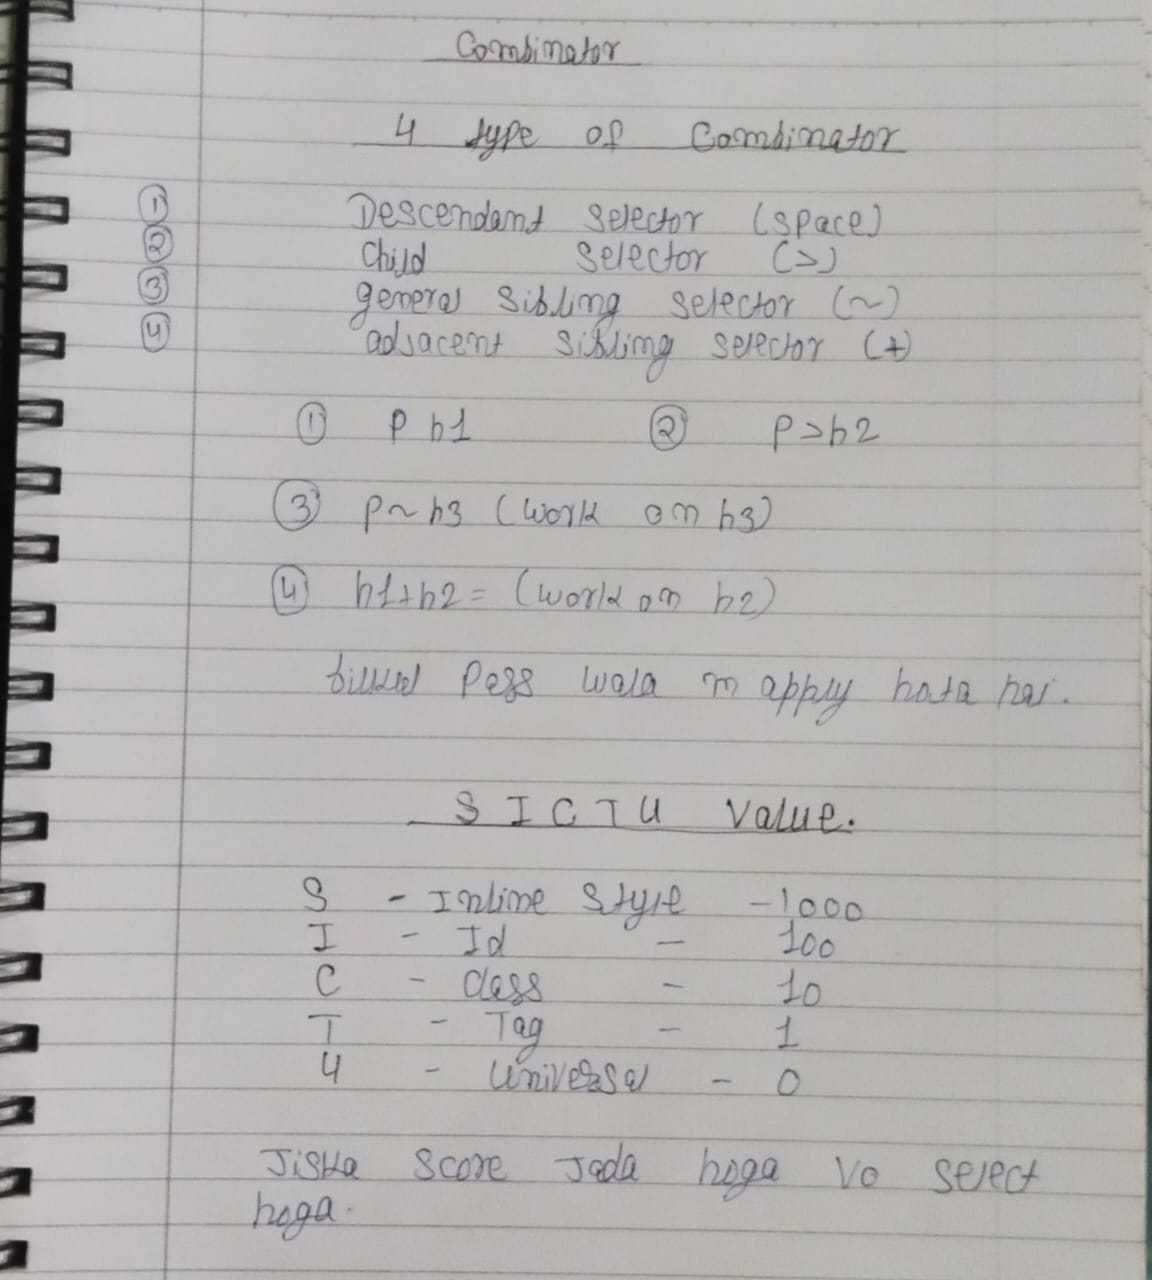 Combinator
4 type of Combinator
① Descendant selector (space)
② Child selector (>)
③ general sibling selector (~)
④ adjacent sibling selector (+)
① P h1 ② P>h2
③ P~h3 (work on h3)
④ h1+h2 = (work on h2)
bilkul Pass wala m apply hota hai.
S I C T U Value.
S - Inline Style - 1000
I - Id - 100
C - Class - 10
T - Tag - 1
U - Universal - 0
Jiska Score Jada hoga Vo select
hoga.